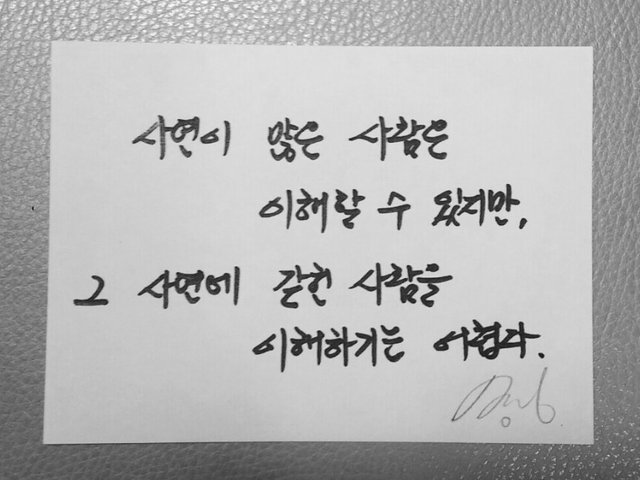 사연이 많은 사람은
이해할 수 있지만,
그 사연에 갇힌 사람을
이해하기는 어렵다.